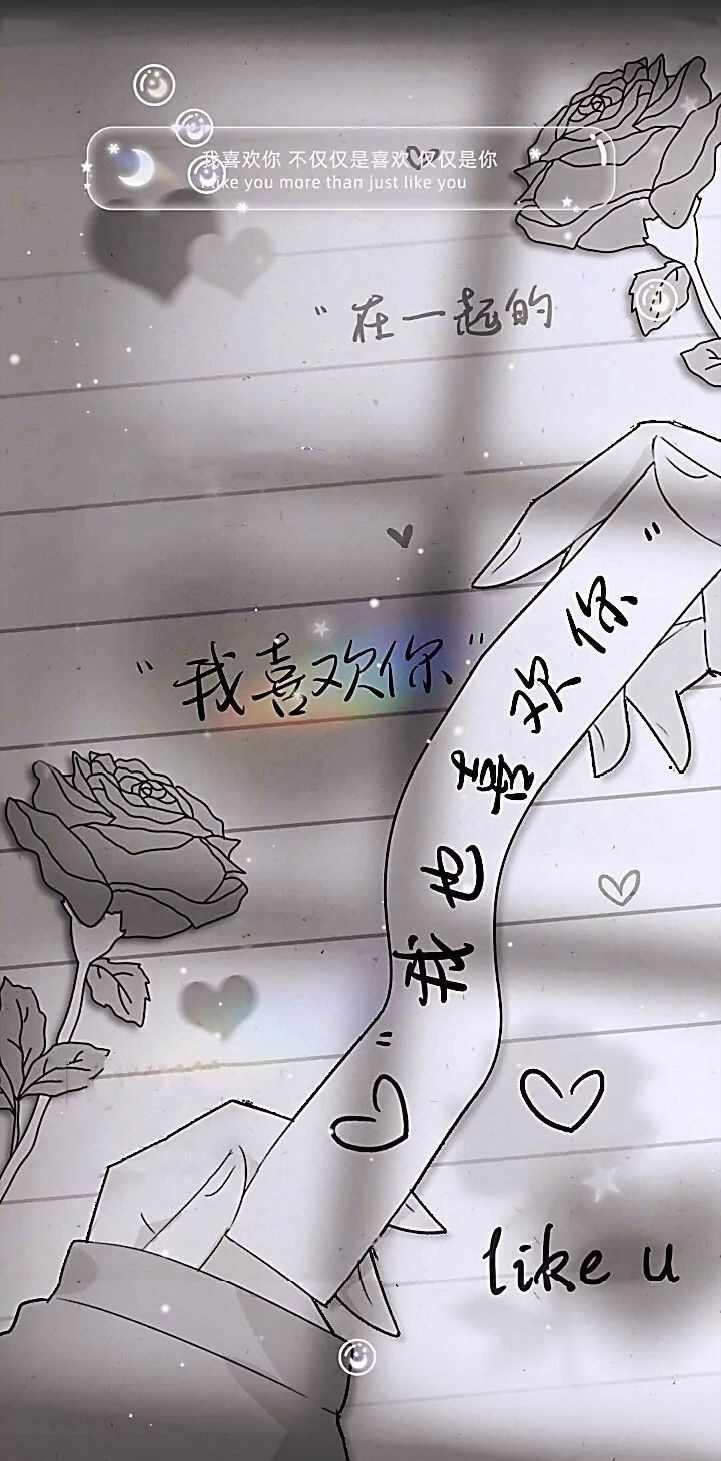 我喜欢你 不仅仅是喜欢 仅仅是你
like you more than just like you
"在一起的
"我喜欢你"
"我也喜欢你"
like u